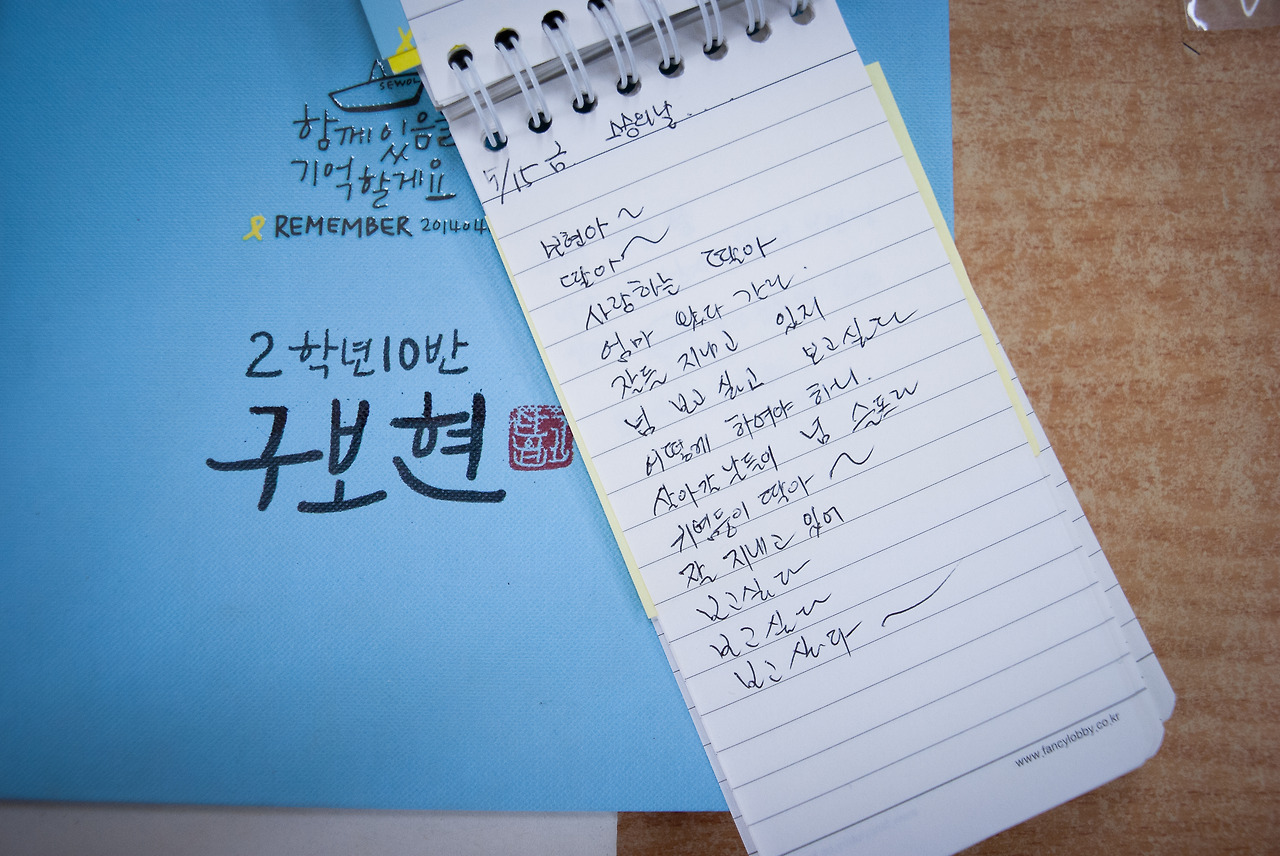 SEWOL
함께 있음을
기억할게요
REMEMBER 201404
2학년10반
구보현
5/15 금 스승의날
보현아~
딸아~
사랑하는 딸아
엄마 왔다 간다.
잘들 지내고 있지
넘 보고 싶고 보고싶다
어떻게 하여야 하니.
살아갈 날들이 넘 슬프다
귀염둥이 딸아~
잘 지내고 있어
보고싶다
보고싶다
보고싶다~
www.fancylobby.co.kr